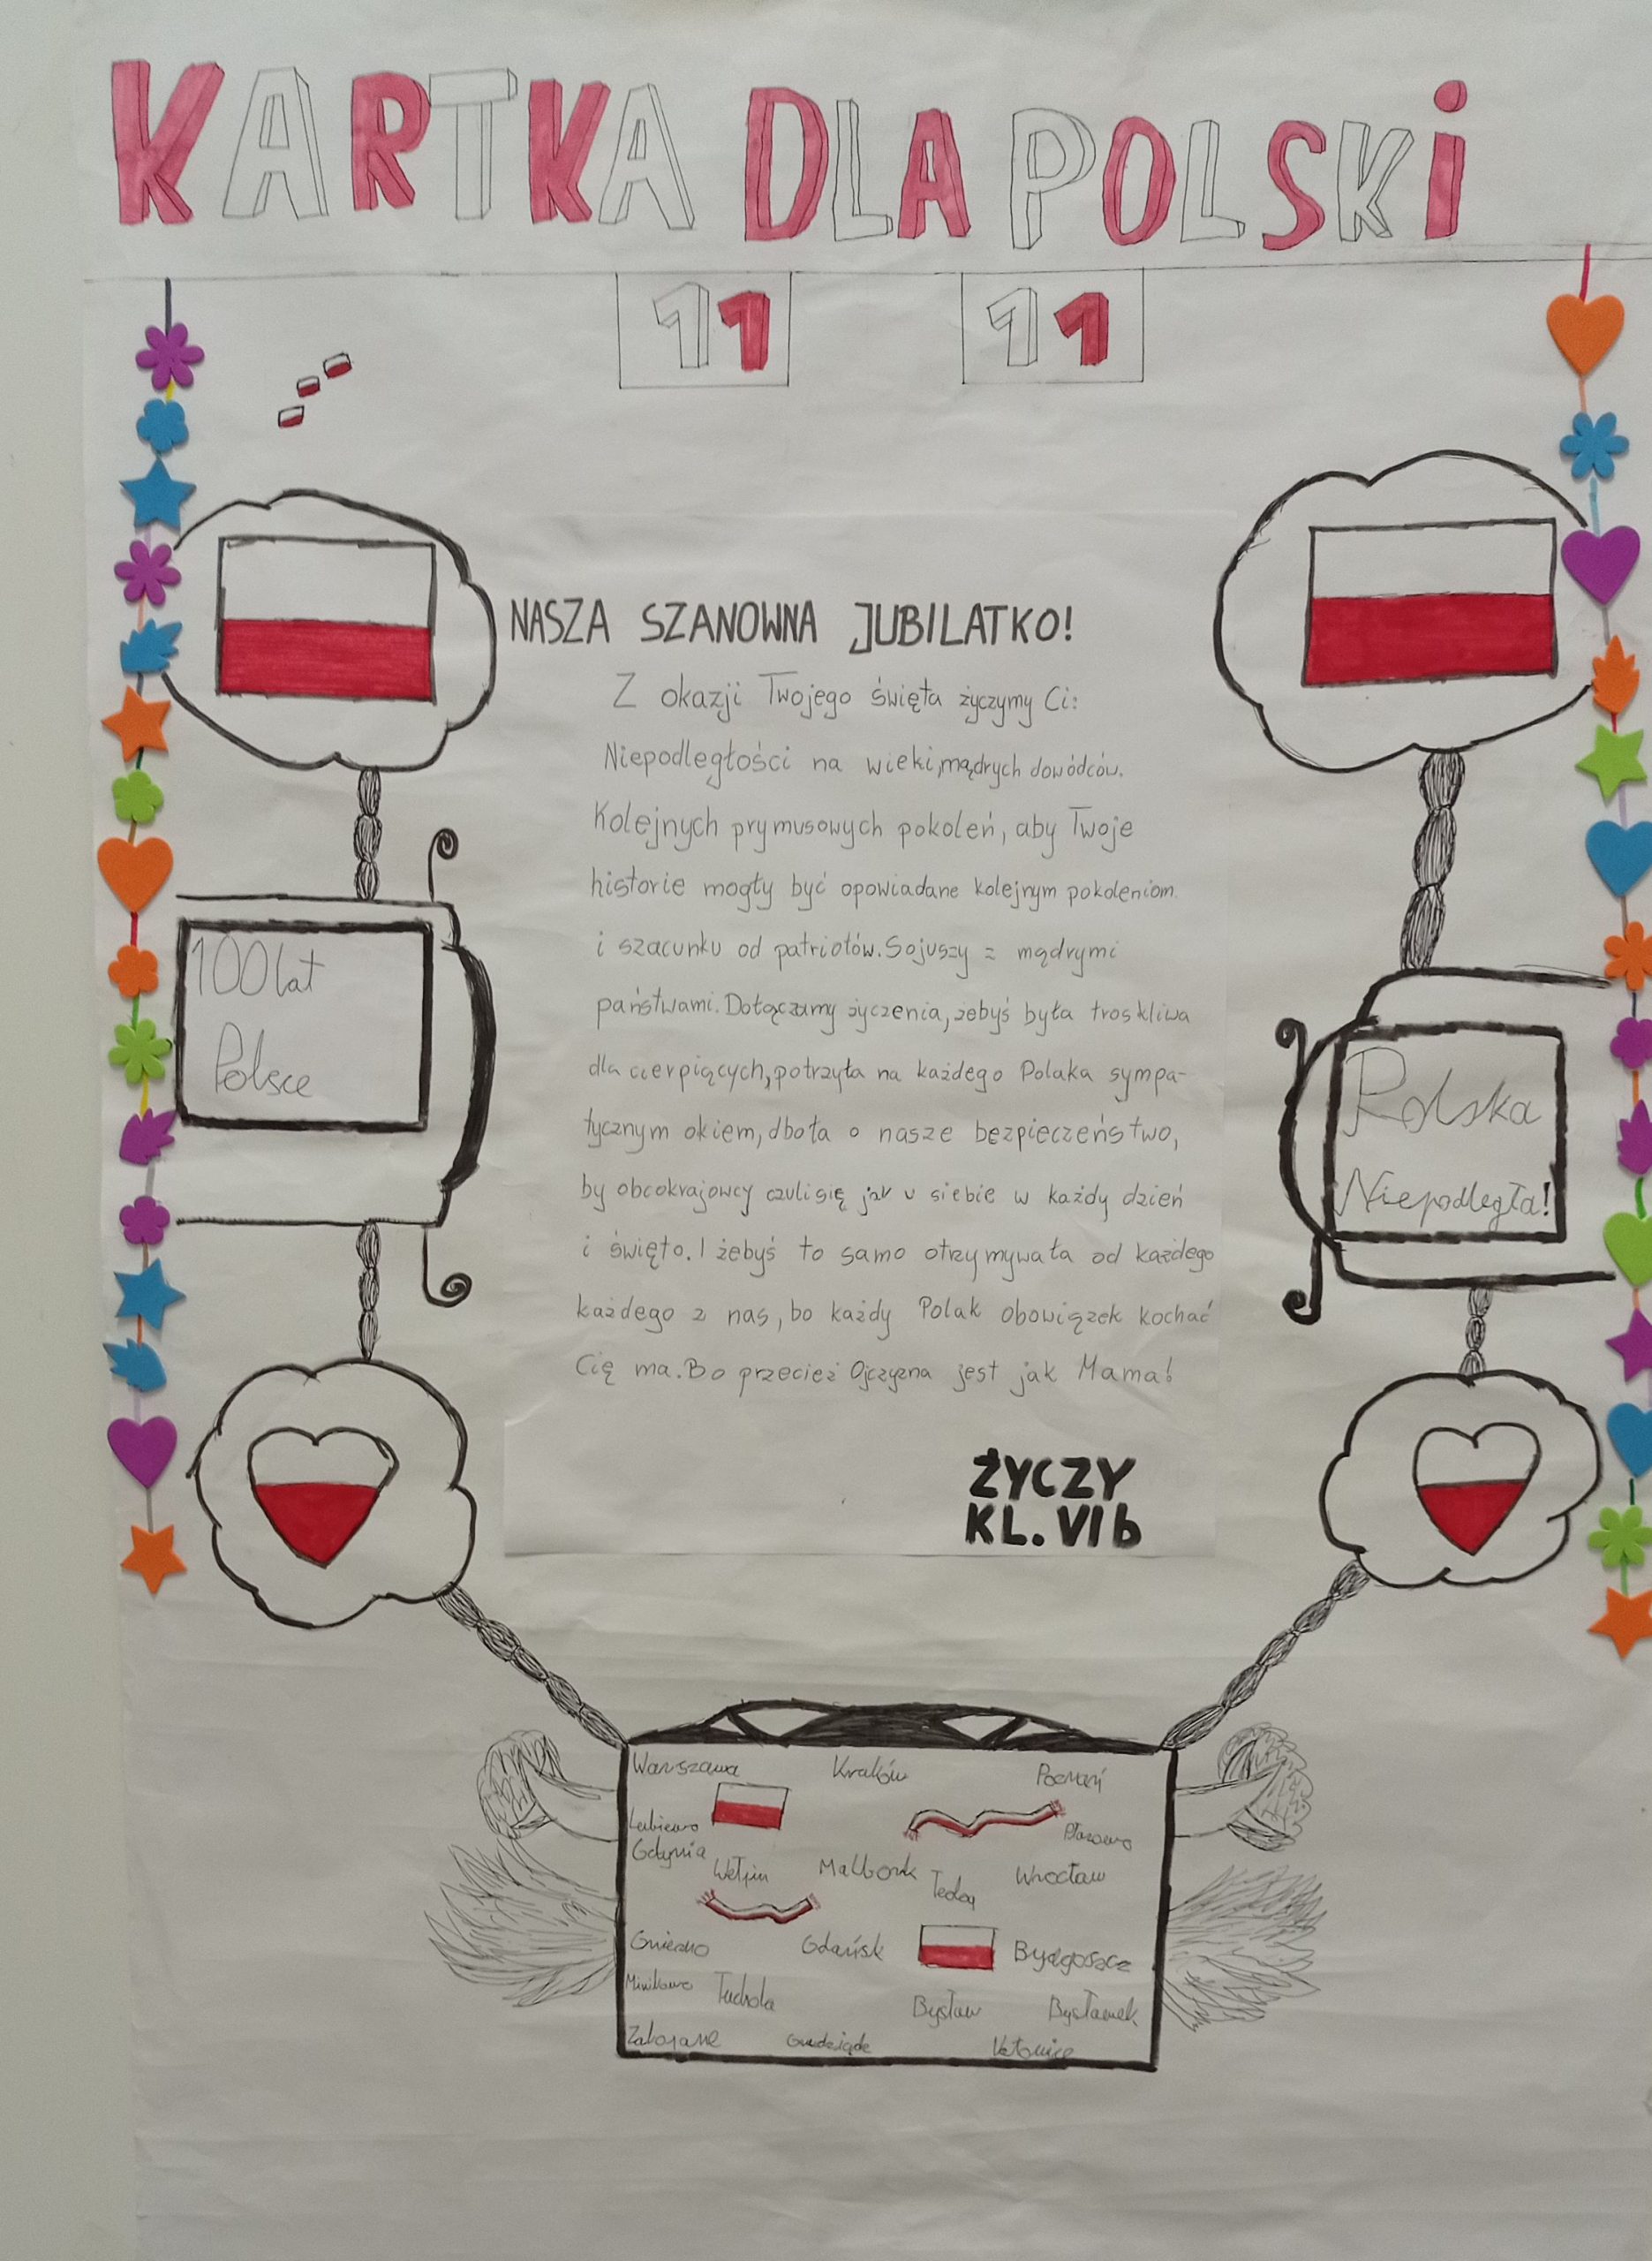 KARTKA DLA POLSKi
11 11
NASZA SZANOWNA JUBILATKO!
Z okazji Twojego święta życzymy Ci:
Niepodległości na wieki,mądrych dowódców.
Kolejnych prymusowych pokoleń, aby Twoje
historie mogły być opowiadane kolejnym pokoleniom.
i szacunku od patriotów. Sojuszy z mądrymi
państwami. Dołączamy życzenia, żebyś była troskliwa
dla cierpiących, potrzyła na każdego Polaka sympa-
tycznym okiem, dboła o nasze bezpieczeństwo,
by obcokrajowcy czuli się jak u siebie w każdy dzień
i święto. I żebyś to samo otrzymywała od każdego
każdego z nas, bo każdy Polak obowiązek kochać
Cię ma. Bo przecież Ojczyzna jest jak Mama!
ŻYCZY
KL. VI b
100 lat
Polsce
Polska
Niepodległa!
Warszawa Kraków Poznań
Lubiewo
Gdynia Malbork Wrocław
Gniezno Gdańsk Bydgoszcz
Minikowo Tuchola Bysław Bysławek
Zakopane Katowice